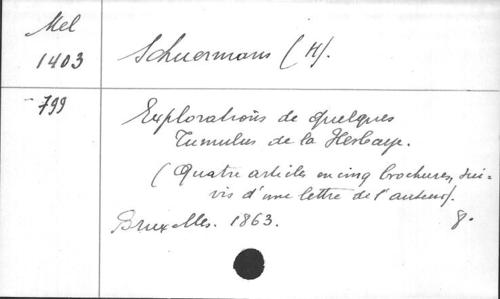 Mel
1403
Schuermans (H).
799
Explorations de quelques
Tumulus de la Hesbaye.
(Quatre articles en cinq brochures, sui-
vis d'une lettre de l'auteur).
Bruxelles. 1863. 8.